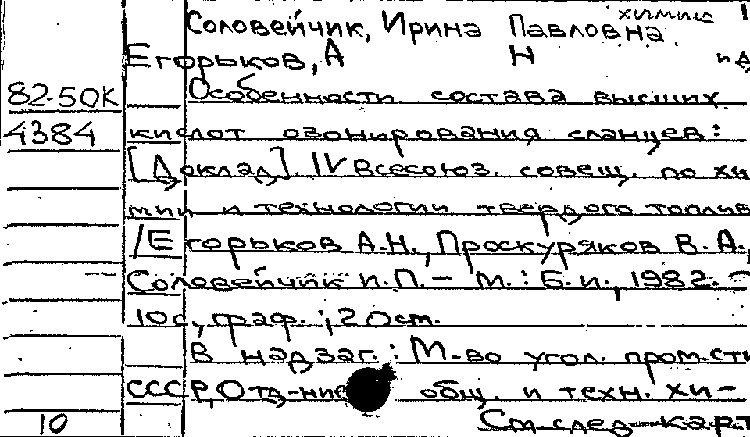 химик
Соловейчик, Ирина Павловна
Егорьков, А Н и д
82-50К Особенности состава высших
4384 кислот озонирования сланцев:
[Доклад]. IV Всесоюз. совещ. по хи
мии и технологии твердого топлив
/Егорьков А.Н., Проскуряков В.А.,
Соловейчик И.П. – М.: Б.и., 1982. –
10с., граф.; 20см.
В надзаг.: М-во угол. пром-сти
СССР, Отд-ние общ. и техн. хи-
10 См. след. карт